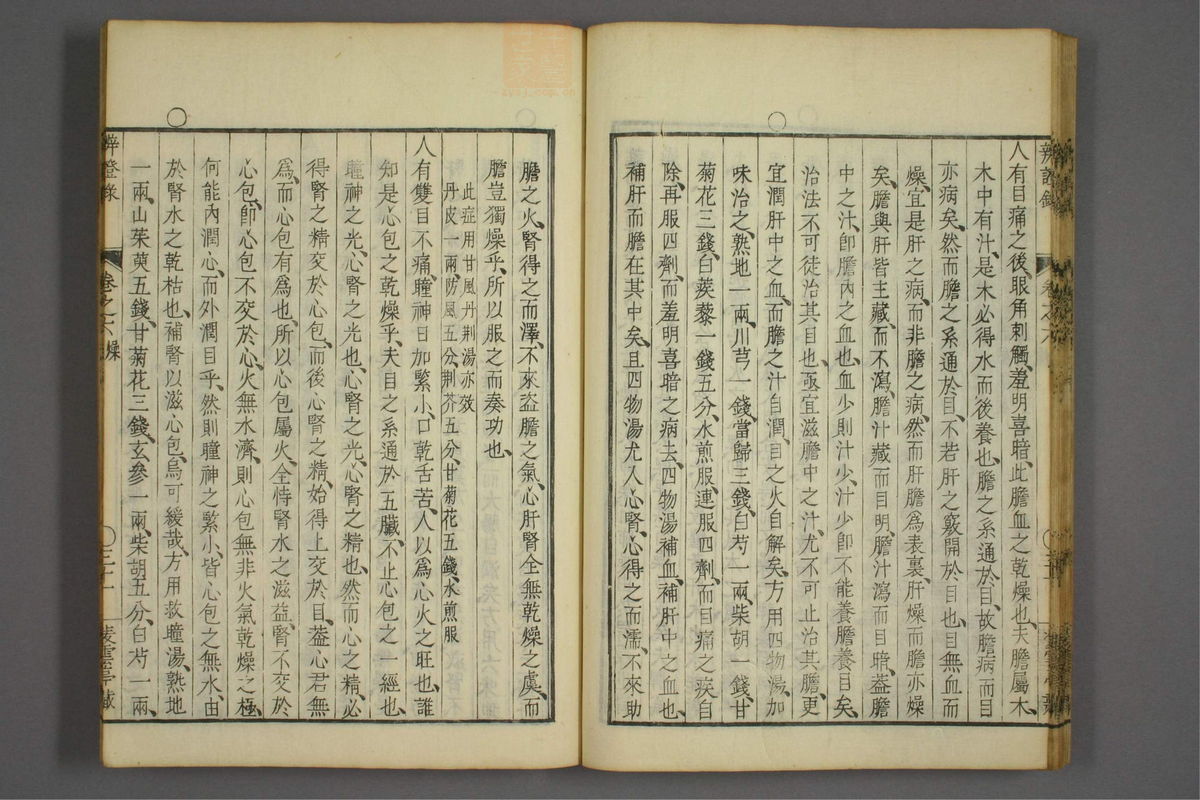 人有目痛之後、眼角刺觸、羞明喜暗、此膽血之乾燥也、夫膽屬木、
木中有汁、是木必得水而後養也、膽之系通於目、故膽病而目
亦病矣、然而膽之系通於目、不若肝之竅開於目也、目無血而
燥、宜是肝之病、而非膽之病、然而肝膽爲表裏、肝燥而膽亦燥
矣、膽與肝皆主藏而不瀉、膽汁藏而目明、膽汁瀉而目暗、蓋膽
中之汁、卽膽內之血也、血少則汁少、汁少卽不能養膽養目矣、
治法不可徒治其目也、亟宜滋膽中之汁、尤不可止治其膽、更
宜潤肝中之血、而膽之汁自潤、目之火自解矣、方用四物湯、加
味治之、熟地一兩、川芎一錢、當歸三錢、白芍一兩、柴胡一錢、甘
菊花三錢、白蒺藜一錢五分、水煎服、連服四劑、而目痛之疾自
除、再服四劑、而羞明喜暗之病去、四物湯補血、補肝中之血也、
補肝而膽在其中矣、且四物湯尤入心腎、心得之而濡、不來助
膽之火、腎得之而澤、不來盜膽之氣、心肝腎全無乾燥之虞、而
膽豈獨燥乎、所以服之而奏功也、
此症用甘風丹荆湯亦效
丹皮一兩、防風五分、荆芥五分、甘菊花五錢、水煎服
人有雙目不痛、瞳神日加緊小、口乾舌苦、人以爲心火之旺也、誰
知是心包之乾燥乎、夫目之系通於五臟、不止心包之一經也、
瞳神之光、心腎之光也、心腎之光、心腎之精也、然而心之精、必
得腎之精交於心包、而後心腎之精、始得上交於目、蓋心君無
爲、而心包有爲也、所以心包屬火、全恃腎水之滋益、腎不交於
心包、卽心包不交於心、火無水濟、則心包無非火氣、乾燥之極、
何能內潤心、而外潤目乎、然則瞳神之緊小、皆心包之無水、由
於腎水之乾枯也、補腎以滋心包、烏可緩哉、方用救瞳湯、熟地
一兩、山茱萸五錢、甘菊花三錢、玄參一兩、柴胡五分、白芍一兩、
辨證錄
卷之六燥
三十一